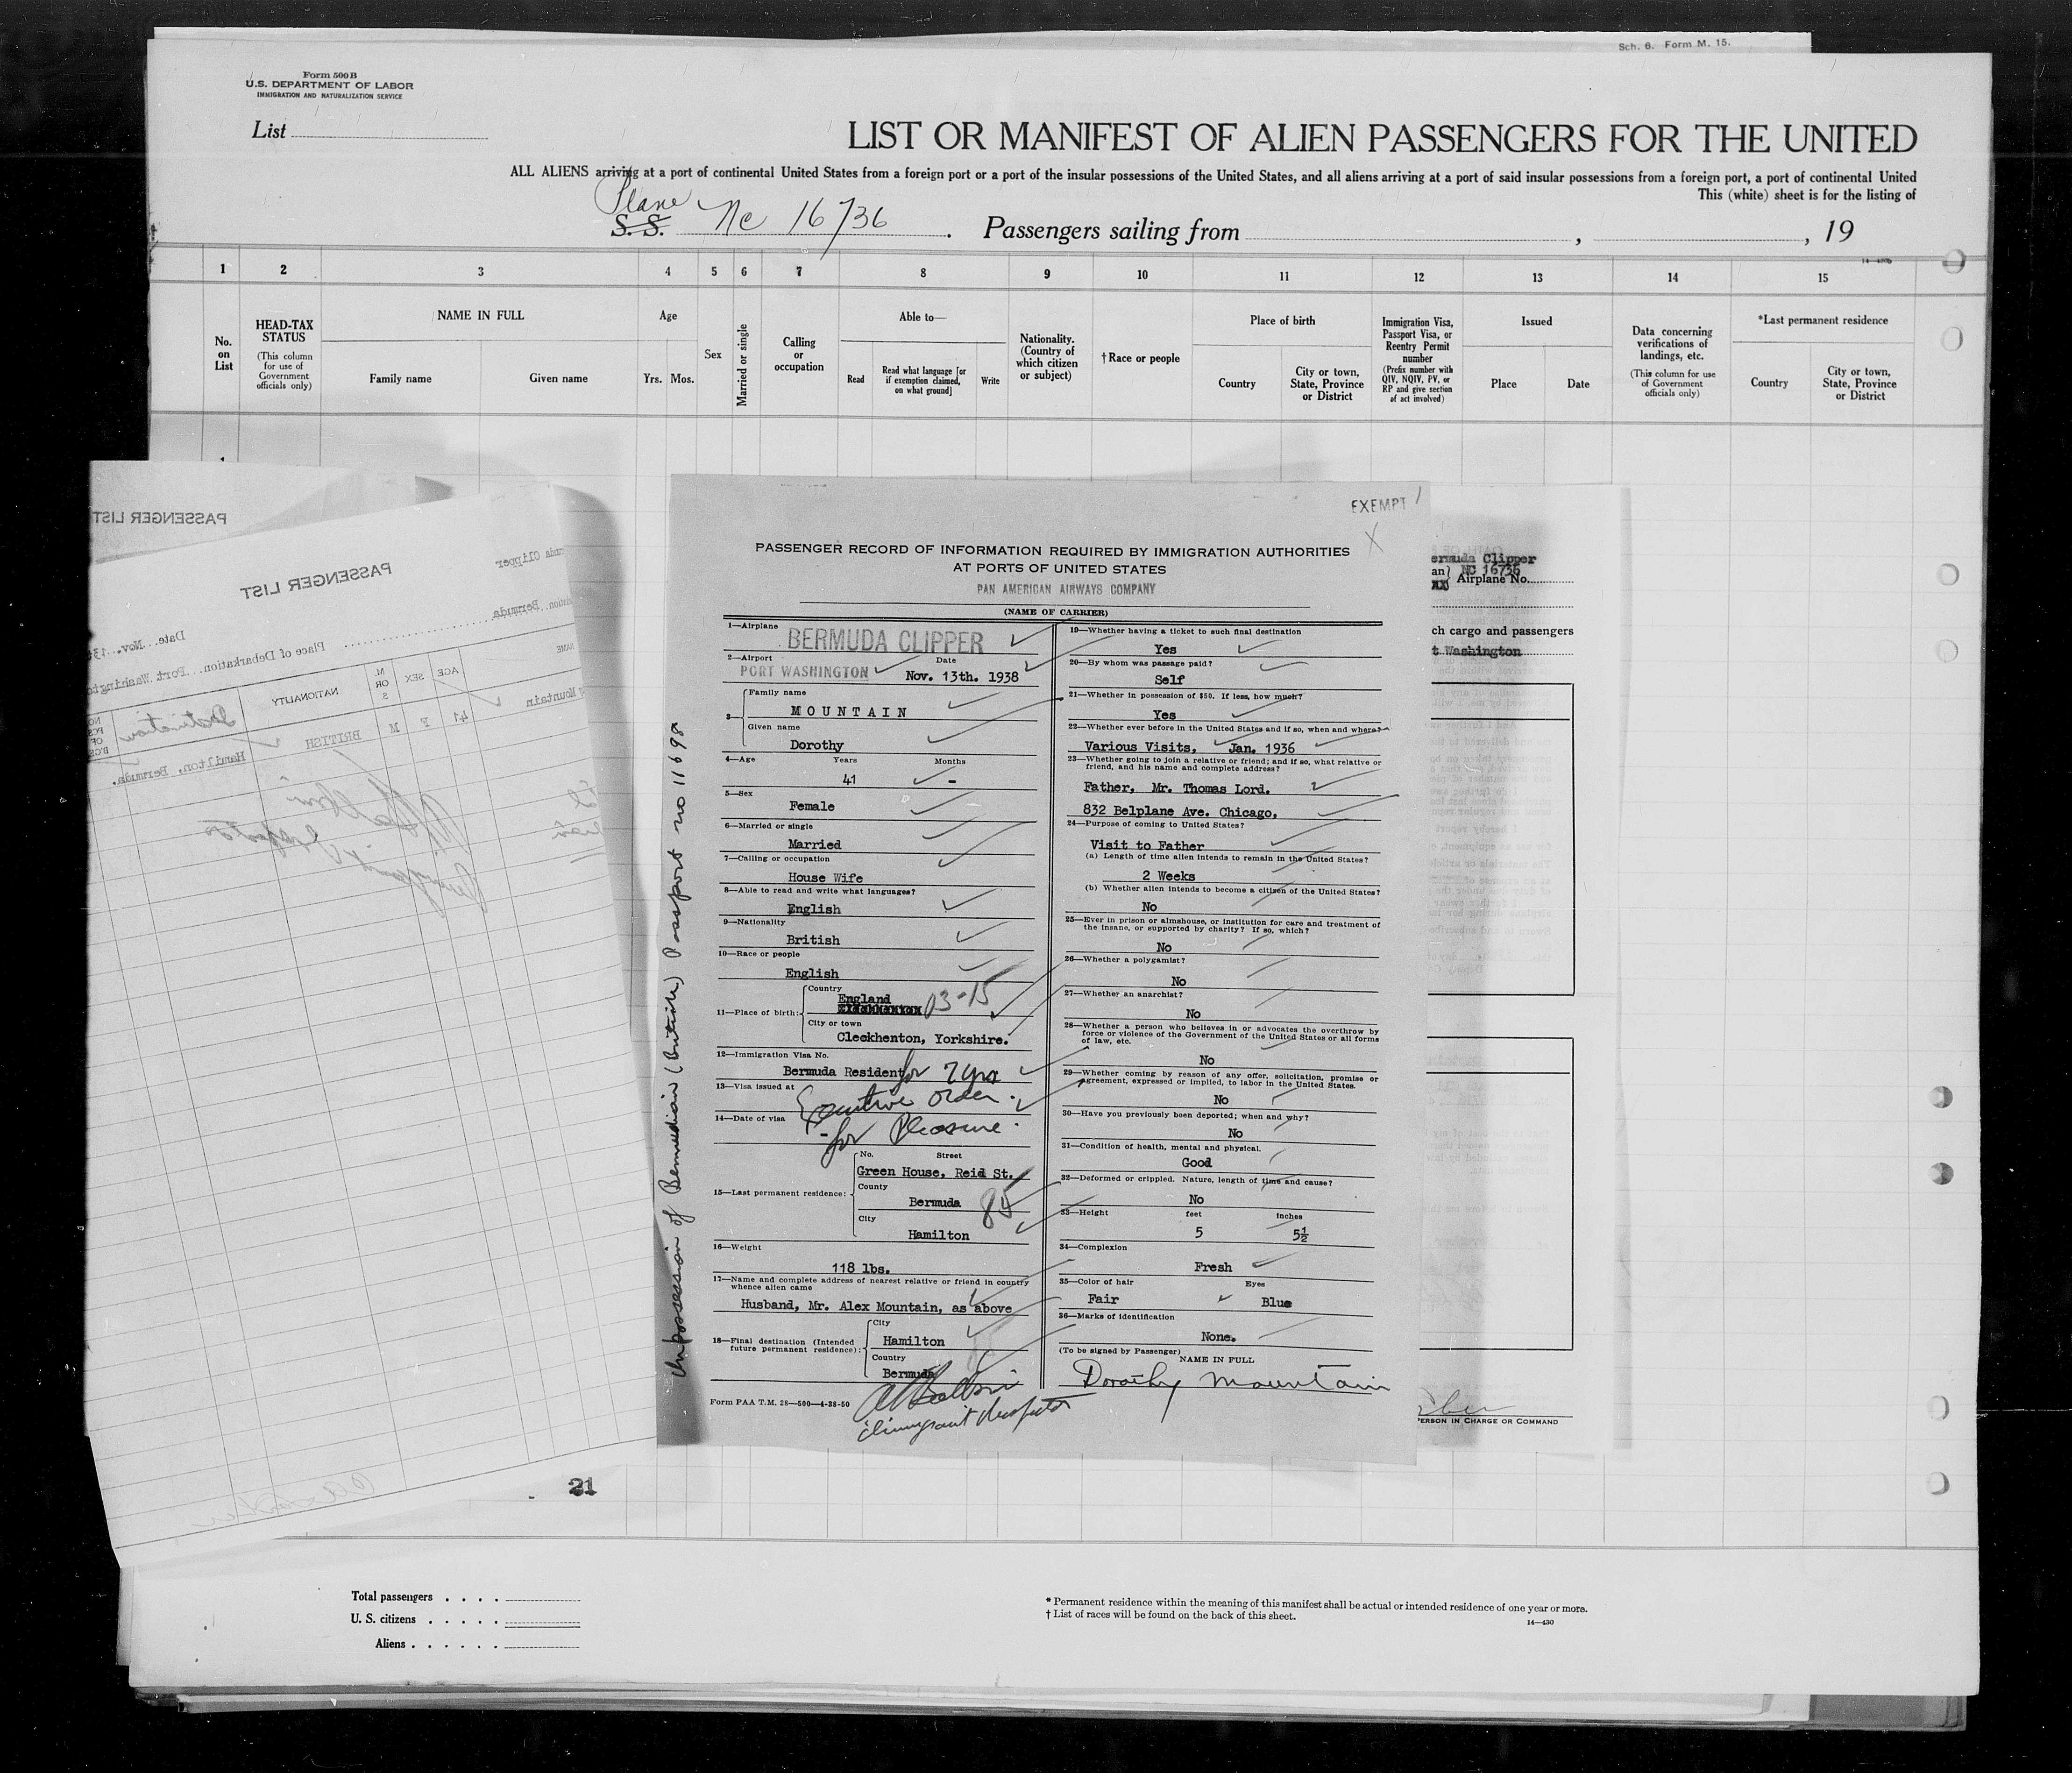 Sch. 6. Form M. 15.
Form 500 B
U.S. DEPARTMENT OF LABOR
IMMIGRATION AND NATURALIZATION SERVICE
List
LIST OR MANIFEST OF ALIEN PASSENGERS FOR THE UNITED
ALL ALIENS arriving at a port of continental United States from a foreign port or a port of the insular possessions of the United States, and all aliens arriving at a port of said insular possessions from a foreign port, a port of continental United
This (white) sheet is for the listing of
Plane
S. S. Nc 16736. Passengers sailing from , , 19
1 2 3 4 5 6 7 8 9 10 11 12 13 14 15
No. on List
HEAD-TAX STATUS
(This column for use of Government officials only)
NAME IN FULL
Family name
Given name
Age
Yrs. Mos.
Sex
Married or single
Calling or occupation
Able to—
Read
Read what language [or if exemption claimed, on what ground]
Write
Nationality. (Country of which citizen or subject)
† Race or people
Place of birth
Country
City or town, State, Province or District
Immigration Visa, Passport Visa, or Reentry Permit number
(Prefix number with QIV, NQIV, PV, or RP and give section of act involved)
Issued
Place
Date
Data concerning verifications of landings, etc.
(This column for use of Government officials only)
*Last permanent residence
Country
City or town, State, Province or District
PASSENGER LIST
PASSENGER LIST
Date Nov. 13
Place of Debarkation Port Washington
Bermuda
NAME
AGE
SEX
M. OR S
NATIONALITY
Destination
Mountain
41
F
M
BRITISH
Hamilton, Bermuda.
EXEMPT
PASSENGER RECORD OF INFORMATION REQUIRED BY IMMIGRATION AUTHORITIES
AT PORTS OF UNITED STATES
PAN AMERICAN AIRWAYS COMPANY
(NAME OF CARRIER)
1—Airplane
BERMUDA CLIPPER
2—Airport Date
PORT WASHINGTON Nov. 13th. 1938
3—
Family name
MOUNTAIN
Given name
Dorothy
4—Age Years Months
41 -
5—Sex
Female
6—Married or single
Married
7—Calling or occupation
House Wife
8—Able to read and write what languages?
English
9—Nationality
British
10—Race or people
English
11—Place of birth:
Country
England 03-15
City or town
Cleckhenton, Yorkshire.
12—Immigration Visa No.
Bermuda Resident for 7 yrs
13—Visa issued at
Executive Order.
14—Date of visa
- for Pleasure.
15—Last permanent residence:
No. Street
Green House, Reid St.
County
Bermuda 85
City
Hamilton
16—Weight
118 lbs.
17—Name and complete address of nearest relative or friend in country
whence alien came
Husband, Mr. Alex Mountain, as above
18—Final destination (Intended
future permanent residence):
City
Hamilton
Country
Bermuda
Form PAA T.M. 28—500—4-38-50
19—Whether having a ticket to such final destination
Yes
20—By whom was passage paid?
Self
21—Whether in possession of $50. If less, how much?
Yes
22—Whether ever before in the United States and if so, when and where?
Various Visits, Jan. 1936
23—Whether going to join a relative or friend; and if so, what relative or
friend, and his name and complete address?
Father, Mr. Thomas Lord.
832 Belplane Ave. Chicago,
24—Purpose of coming to United States?
Visit to Father
(a) Length of time alien intends to remain in the United States?
2 Weeks
(b) Whether alien intends to become a citizen of the United States?
No
25—Ever in prison or almshouse, or institution for care and treatment of
the insane, or supported by charity? If so, which?
No
26—Whether a polygamist?
No
27—Whether an anarchist?
No
28—Whether a person who believes in or advocates the overthrow by
force or violence of the Government of the United States or all forms
of law, etc.
No
29—Whether coming by reason of any offer, solicitation, promise or
agreement, expressed or implied, to labor in the United States.
No
30—Have you previously been deported; when and why?
No
31—Condition of health, mental and physical.
Good
32—Deformed or crippled. Nature, length of time and cause?
No
33—Height feet inches
5 5½
34—Complexion
Fresh
35—Color of hair Eyes
Fair Blue
36—Marks of identification
None.
(To be signed by Passenger)
NAME IN FULL
Dorothy Mountain
In possession of Bermudian (British) Passport no 11698
ermuda Clipper
an} NC 16736
Airplane No.
ch cargo and passengers
t Washington
PERSON IN CHARGE OR COMMAND
21
Total passengers
U. S. citizens
Aliens
* Permanent residence within the meaning of this manifest shall be actual or intended residence of one year or more.
† List of races will be found on the back of this sheet.
14—430